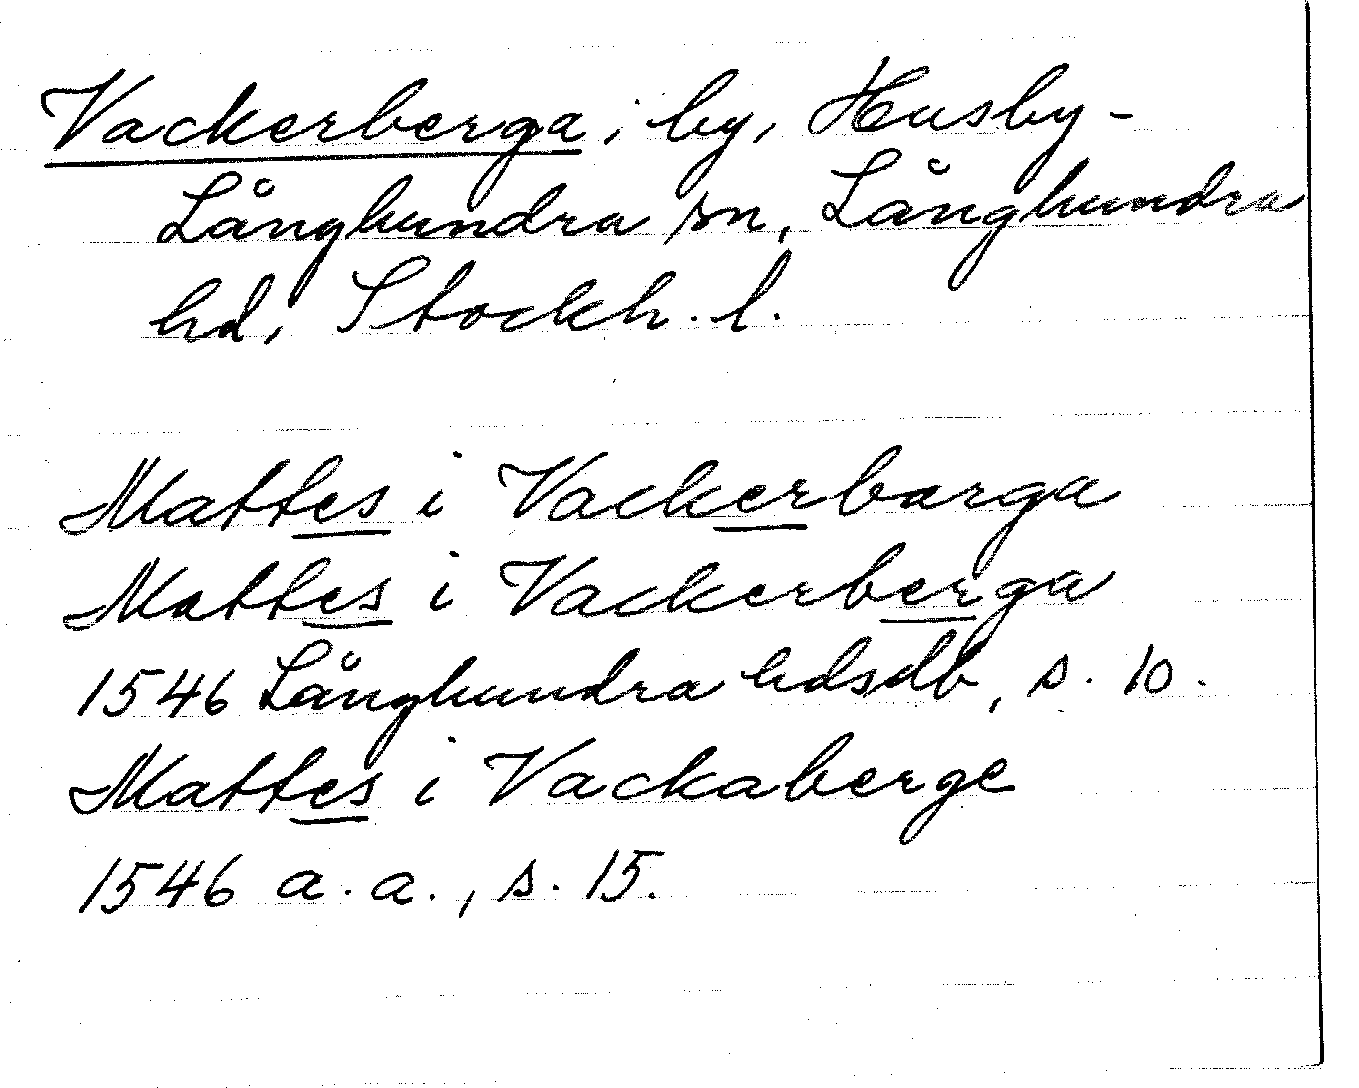 Vackerberga, by, Husby-
Långhundra sn, Långhundra
hd, Stockh. l.
Mattes i Vackerbarga
Mattes i Vackerberga
1546 Långhundra hdsdb, s. 10.
Mattes i Vackaberge
1546 a. a., s. 15.